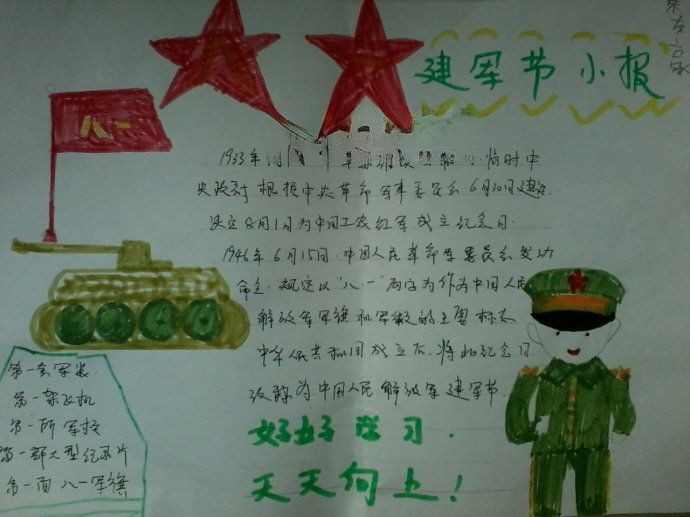 建军节小报
八一
1933年
临时中
央政府根据中央革命军事委员会6月30日建议
决定8月1日为中国工农红军成立纪念日.
1946年6月15日.中国人民革命军委员会发动
命令.规定以"八.一"两字为作为中国人民
解放军军旗和军徽的主要标志
中华人民共和国成立后.将此纪念日
改称为中国人民解放军建军节.
好好学习.
天天向上!
第一套军装
第一架飞机
第一所军校
第一部大型纪录片
第一面八一军旗